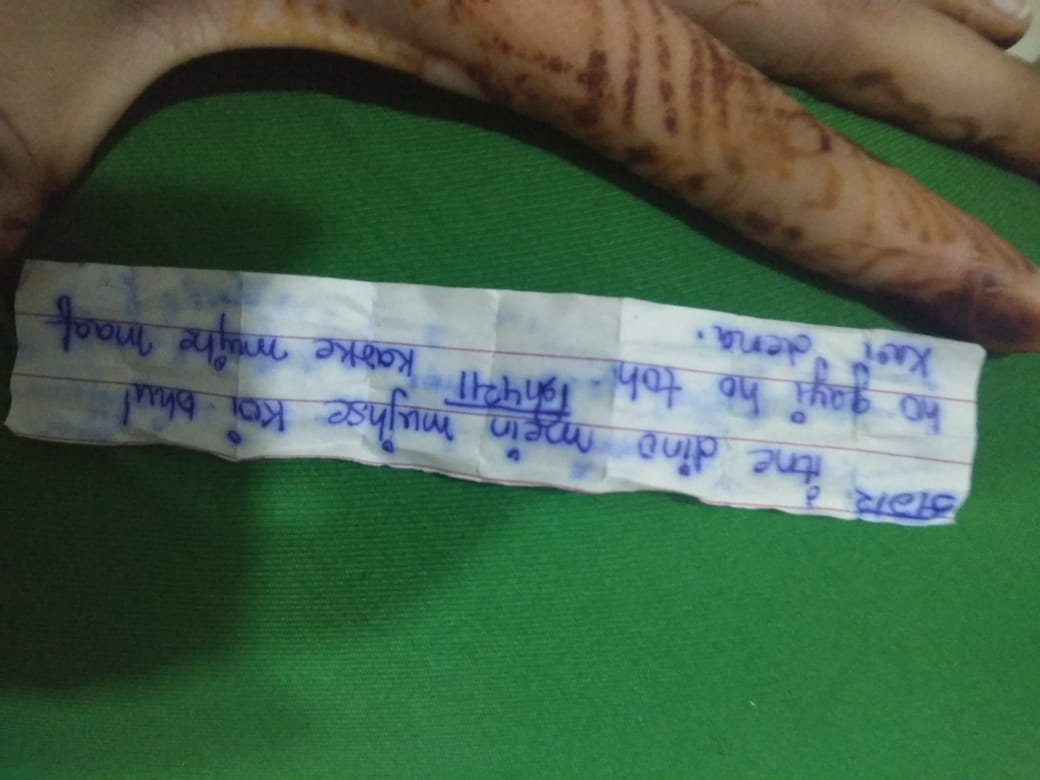 अगर itne dino mein mujhse koi bhul
ho gayi ho toh कृपया karke mujhe maaf
kar dena.